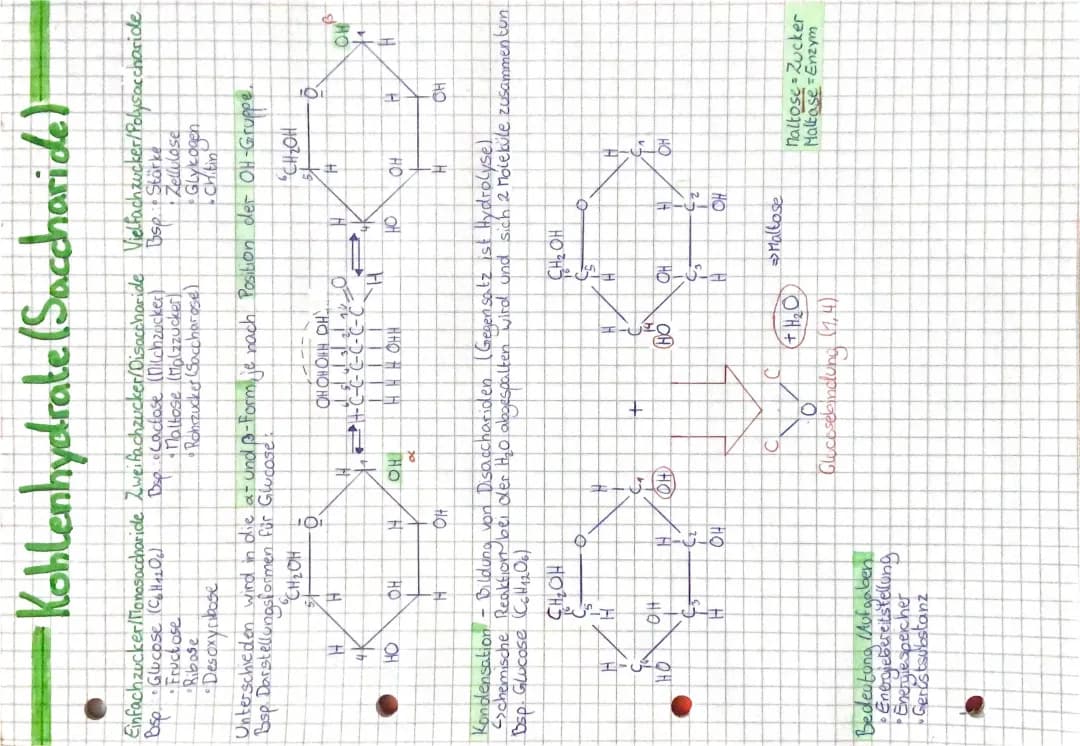 Kohlenhydrate (Saccharide)
Einfachzucker/Monosaccharide
Bsp.: • Glucose (C₆H₁₂O₆)
• Fructose
• Ribose
• Desoxyribose
Zweifachzucker/Disaccharide
Bsp.: • Lactose (Milchzucker)
• Maltose (Malzzucker)
• Rohrzucker (Saccharose)
Vielfachzucker/Polysaccharide
Bsp.: • Stärke
• Zellulose
• Glykogen
• Chitin
Unterschieden wird in die α- und β-Form, je nach Position der OH-Gruppe.
Bsp. Darstellungsformen für Glucose:
⁶CH₂OH
5 O
H H H
4 OH H 1
HO OH
α
H OH
OH OH OH H OH
H-C-C-C-C-C-C=O
H H H OH H
H
⁶CH₂OH
5 O
H H OH
β
4 OH H 1
HO H
H OH
Kondensation - Bildung von Disacchariden (Gegensatz ist Hydrolyse)
↳ chemische Reaktion bei der H₂O abgespalten wird und sich 2 Moleküle zusammentun
Bsp. Glucose (C₆H₁₂O₆)
CH₂OH
C₅ O
H H H
C₄ OH H C₁
HO OH
C₃ C₂
H OH
+
CH₂OH
C₅ O
H H H
C₄ OH H C₁
HO OH
C₃ C₂
H OH
C C
O
+ H₂O
⇒ Maltose
Glucosebindung (1,4)
Maltose = Zucker
Maltase = Enzym
Bedeutung/Aufgaben
• Energiebereitstellung
• Energiespeicher
• Gerüstsubstanz